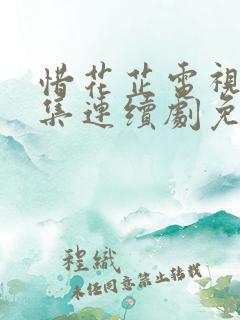 惜花芷電視
集連續劇免
程織
未经同意禁止转载